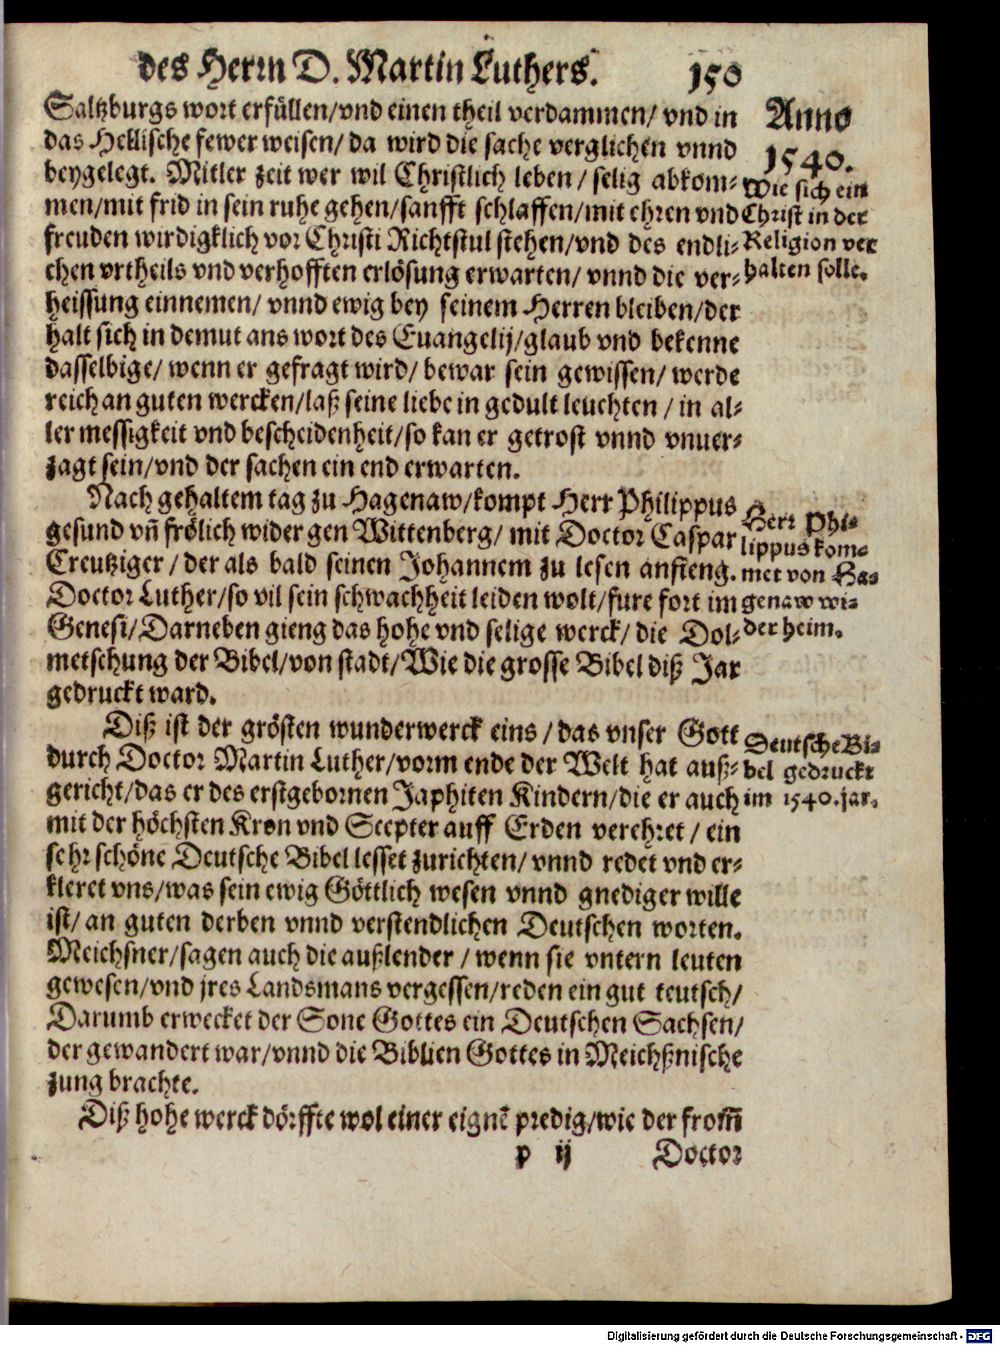 des Herrn D. Martin Luthers. 150
Saltzburgs wort erfüllen/vnd einen theil verdammen/ vnd in
das Hellische fewer weisen/ da wird die sache verglichen vnnd
beygelegt. Mitler zeit wer wil Christlich leben / selig abkom-
men/mit frid in sein ruhe gehen/sanfft schlaffen/mit ehren vnd
freuden wirdigklich vor Christi Richtstul stehen/vnd des endli-
chen vrtheils vnd verhofften erlösung erwarten/ vnnd die ver-
heissung einnemen/ vnnd ewig bey seinem Herren bleiben/der
halt sich in demut ans wort des Euangelij/glaub vnd bekenne
dasselbige/ wenn er gefragt wird/ bewar sein gewissen/ werde
reich an guten wercken/laß seine liebe in gedult leuchten / in al-
ler messigkeit vnd bescheidenheit/so kan er getrost vnnd vnuer-
zagt sein/vnd der sachen ein end erwarten.
Anno
1540.
Wie sich ein
Christ in der
Religion ver
halten solle.
Nach gehaltem tag zu Hagenaw/kompt Herr Philippus
gesund vn̄ frölich wider gen Wittenberg/ mit Doctor Caspar
Creutziger / der als bald seinen Johannem zu lesen anfieng.
Doctor Luther/so vil sein schwachheit leiden wolt/fure fort im
Genesi/Darneben gieng das hohe vnd selige werck/ die Dol-
metschung der Bibel/von stadt/Wie die grosse Bibel diß Jar
gedruckt ward.
Herr Phi-
lippus kom-
met von Ha-
genaw wi-
der heim.
Diß ist der grösten wunderwerck eins / das vnser Gott
durch Doctor Martin Luther/vorm ende der Welt hat auß-
gericht/das er des erstgebornen Japhiten Kindern/die er auch
mit der höchsten Kron vnd Scepter auff Erden verehret / ein
sehr schöne Deutsche Bibel lesset zurichten/ vnnd redet vnd er-
kleret vns/was sein ewig Göttlich wesen vnnd gnediger wille
ist/ an guten derben vnnd verstendlichen Deutschen worten.
Meichsner/sagen auch die außlender / wenn sie vntern leuten
gewesen/vnd jres Landsmans vergessen/reden ein gut teutsch/
Darumb erwecket der Sone Gottes ein Deutschen Sachsen/
der gewandert war/vnnd die Biblien Gottes in Meichßnische
zung brachte.
Deutsche Bi-
bel gedruckt
im 1540. jar.
Diß hohe werck dörffte wol einer eignē predig/wie der from̄
p ij Doctor
Digitalisierung gefördert durch die Deutsche Forschungsgemeinschaft - DFG